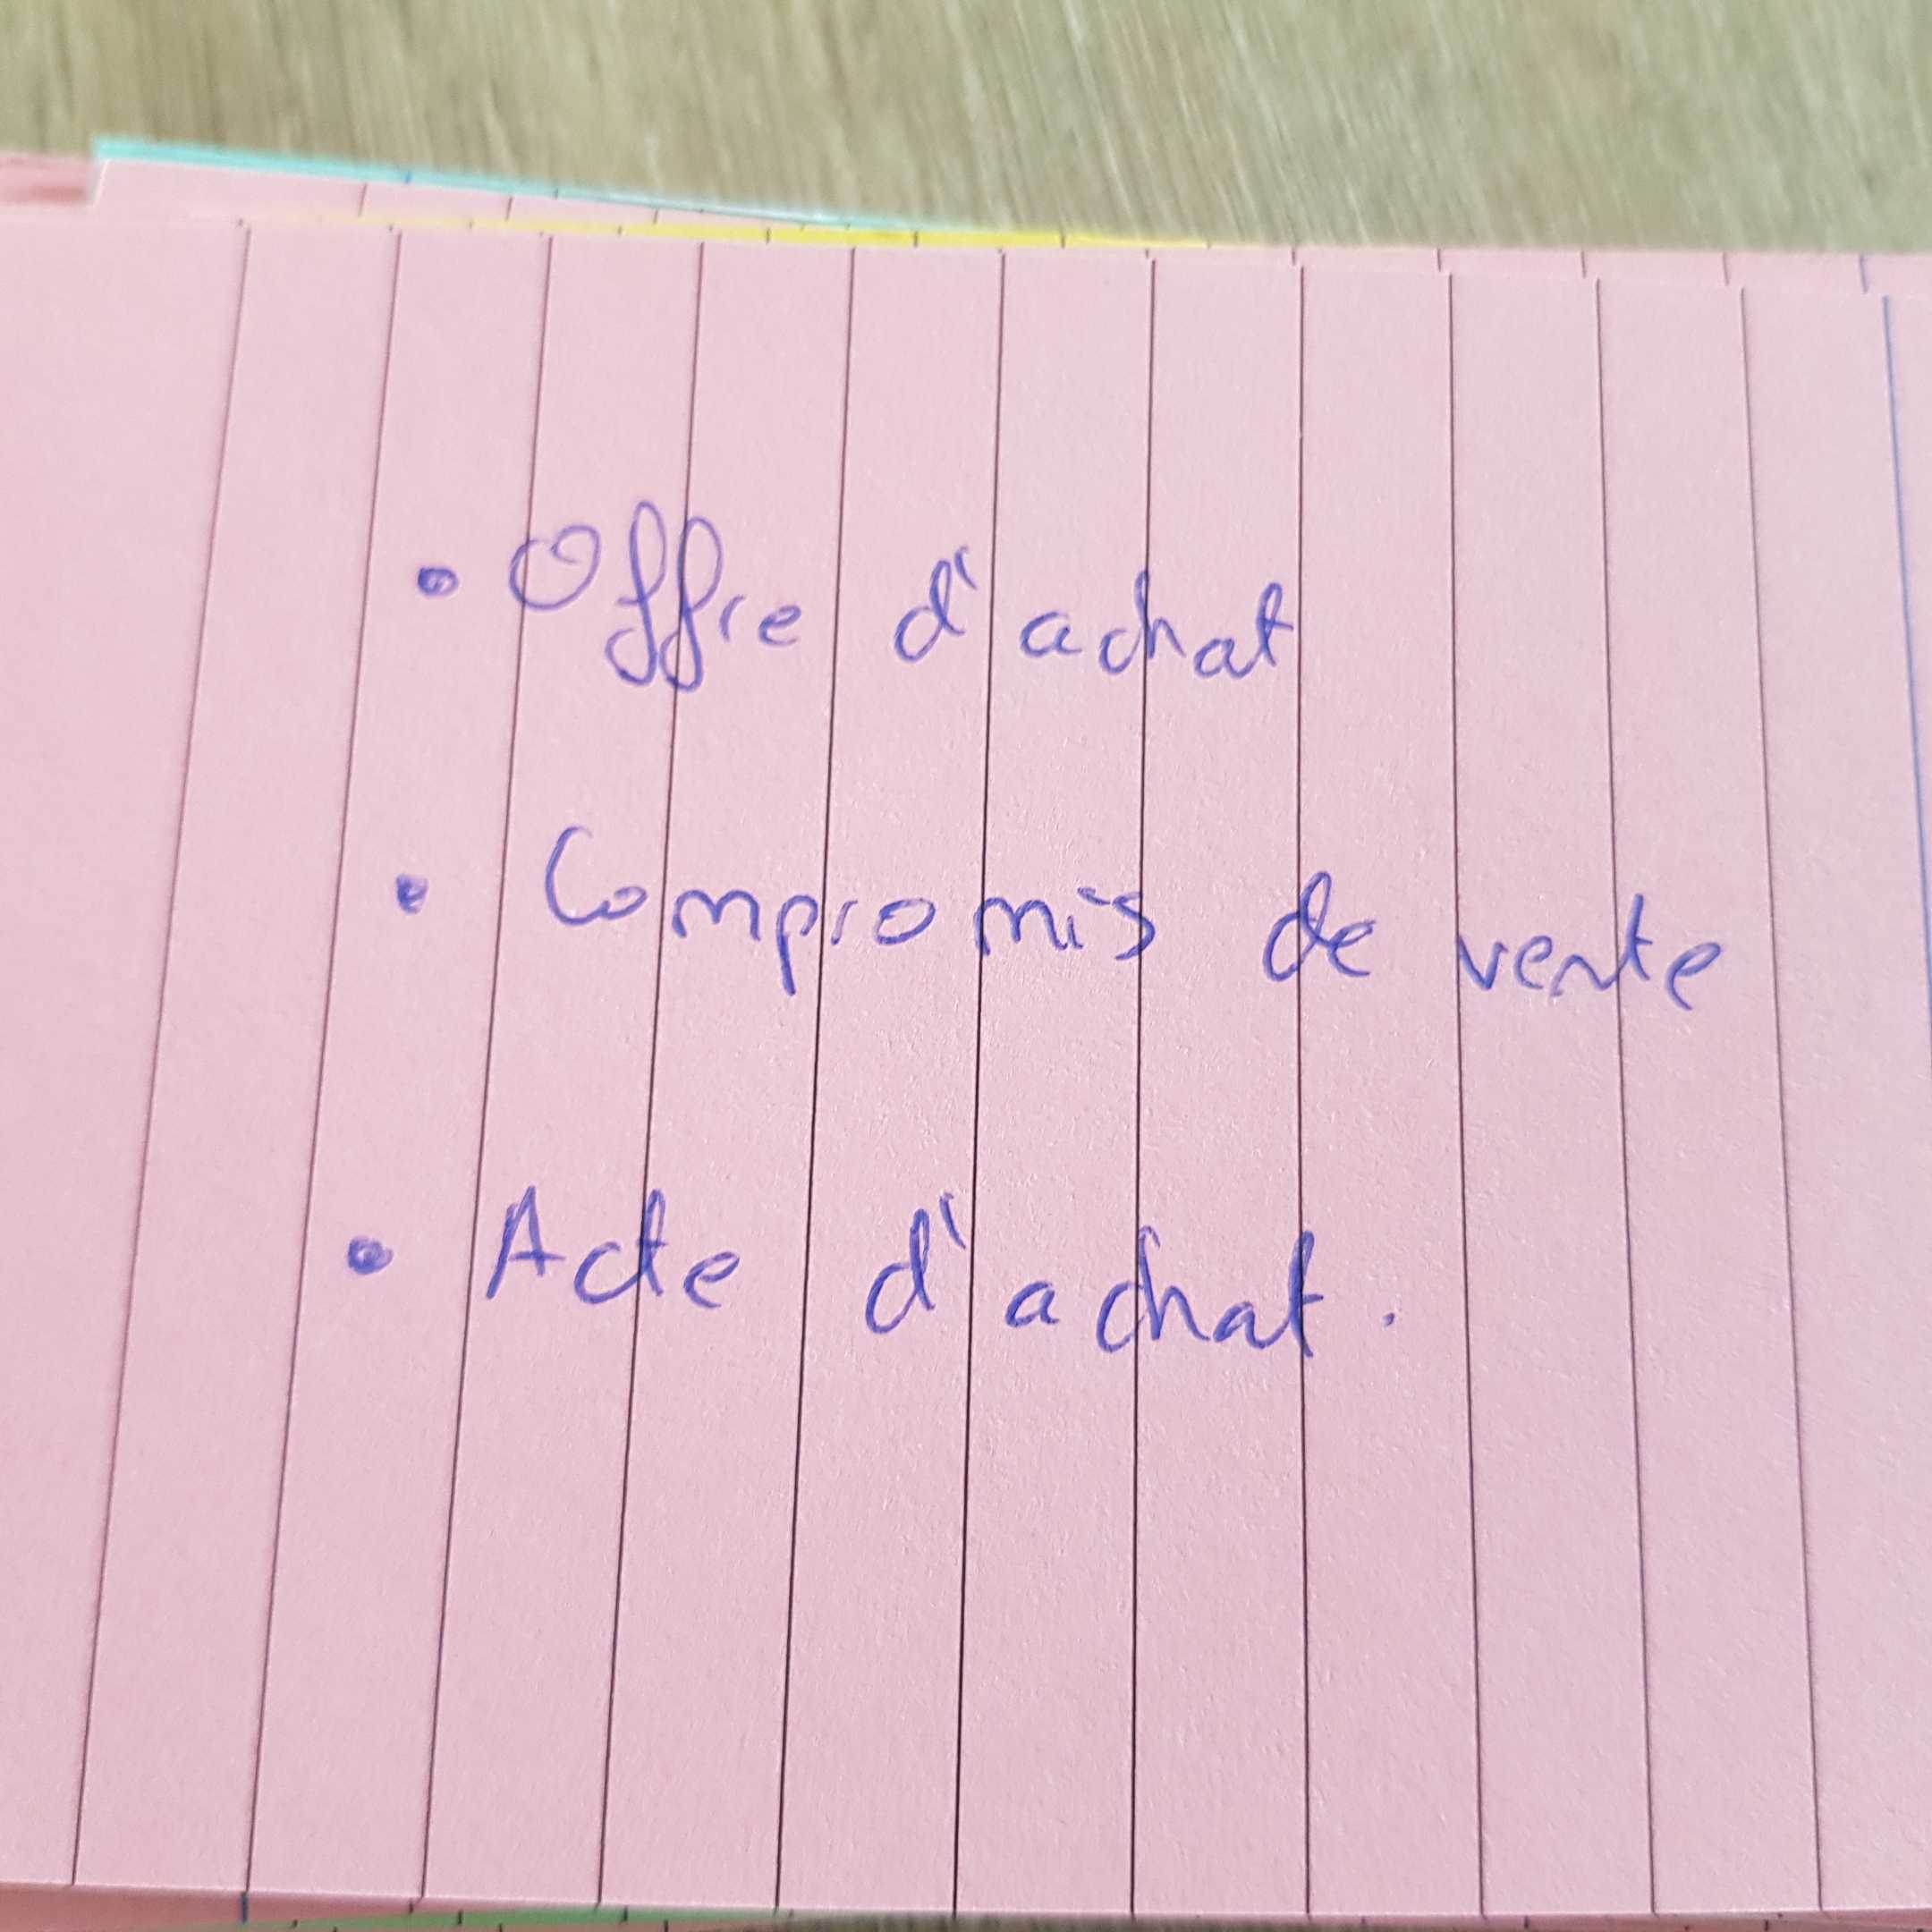 • Offre d'achat
• Compromis de vente
• Acte d'achat.